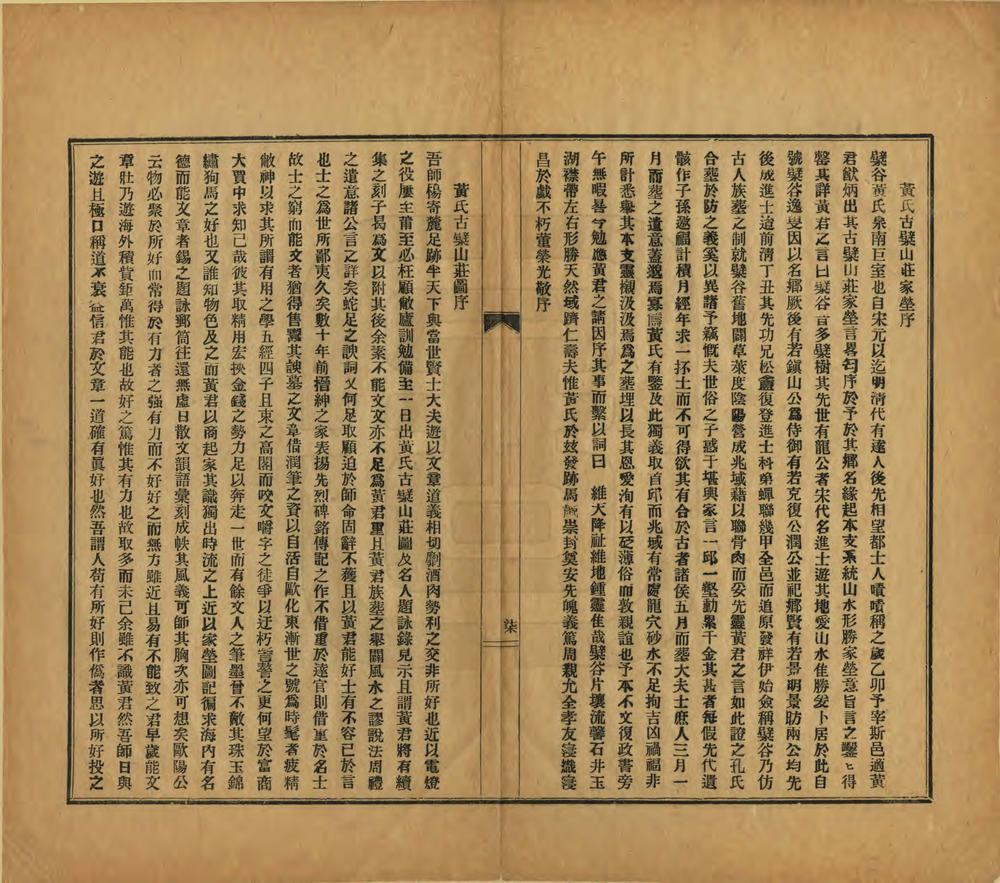 黃氏古檗山莊家塋序
檗谷黃氏泉南巨室也自宋元以迄明清代有達人後先相望都士人嘖嘖稱之歲乙卯予宰斯邑適黃
君猷炳出其古檗山莊家塋言畧匄序於予於其鄉名緣起本支系統山水形勝家塋意旨言之鑿ヒ得
罄其詳黃君之言曰檗谷言多檗樹其先世有龍公者宋代名進士遊其地愛山水佳勝爰卜居於此自
號檗谷逸叟因以名鄉厥後有若鎭山公爲侍御有若克復公潤公並祀鄉賢有若景明景昉兩公均先
後成進士迨前淸丁丑其先功兄松龕復登進士科弟蟬聯幾甲全邑而追原發祥伊始僉稱檗谷乃仿
古人族塟之制就檗谷舊地闢草萊度陰陽營成兆域藉以聯骨肉而妥先靈黃君之言如此證之孔氏
合塟於防之義奚以異諸予竊慨夫世俗之子惑于堪輿家言一邱一壑動累千金其甚者每假先代遺
骸作子孫邀福計積月經年求一抔土而不可得欲其有合於古者諸侯五月而塟大夫士庶人三月一
月而塟之遺意蓋邈焉寡儔黃氏有鑒及此獨義取首邱而兆域有常處龍穴砂水不足拘吉凶禍福非
所計悉舉其本支靈櫬汲汲焉爲之塟埋以長其恩愛洵有以砭薄俗而敦親誼也予本不文復政書旁
午無暇晷今勉應黃君之請因序其事而繫以詞曰　維天降祉維地鍾靈隹哉檗谷片壤流馨石井玉
湖襟帶左右形勝天然域躋仁壽夫惟黃氏於茲發跡馬崇封奠安先魄義篤周親允全孝友寖熾寖
昌於戲不朽董榮光敬序
黃氏古檗山莊圖序
吾師楊寄麓足跡半天下與當世賢士大夫遊以文章道義相切劘酒肉勢利之交非所好也近以電燈
之役屢主莆至必枉顧敝廬訓勉備至一日出黃氏古檗山莊圖及名人題詠錄見示且謂黃君將有續
集之刻子曷爲文以附其後余案不能文文亦不足爲黃君重且黃君族塟之舉闢風水之謬說法周禮
之遺意諸公言之詳矣蛇足之諛詞又何足取顧迫於師命固辭不獲且以黃君能好士有不容已於言
也士之爲世所鄙夷久矣數十年前搢紳之家表揚先烈碑銘傳記之作不借重於達官則借重於名士
故士之窮而能文者猶得售其諛墓之文章借潤筆之資以自活自歐化東漸世之號爲時髦者疲精
敝神以求其所謂有用之學五經四子且束之高閣而咬文嚼字之徒爭以迂朽詧之更何望於富商
大賈中求知己哉彼其取精用宏挾金錢之勢力足以奔走一世而有餘文人之筆墨曾不敵其珠玉錦
繡狗馬之好也又誰知物色及之而黃君以商起家其識獨出時流之上近以家塋圖記徧求海內有名
德而能文章者錫之題詠郵筒往還無虛日散文韻語彙刻成帙其風義可師其胸次亦可想矣歐陽公
云物必聚於所好而常得於有力者之強有力而不好好之而無方雖近且易有不能致之君早歲能文
章壯乃遊海外積貲鉅萬惟其能也故好之篤惟其有力也故取多而未已余雖不識黃君然吾師日與
之遊且極口稱道不衰益信君於文章一道確有眞好也然吾謂人苟有所好則作僞者思以所好投之
柒